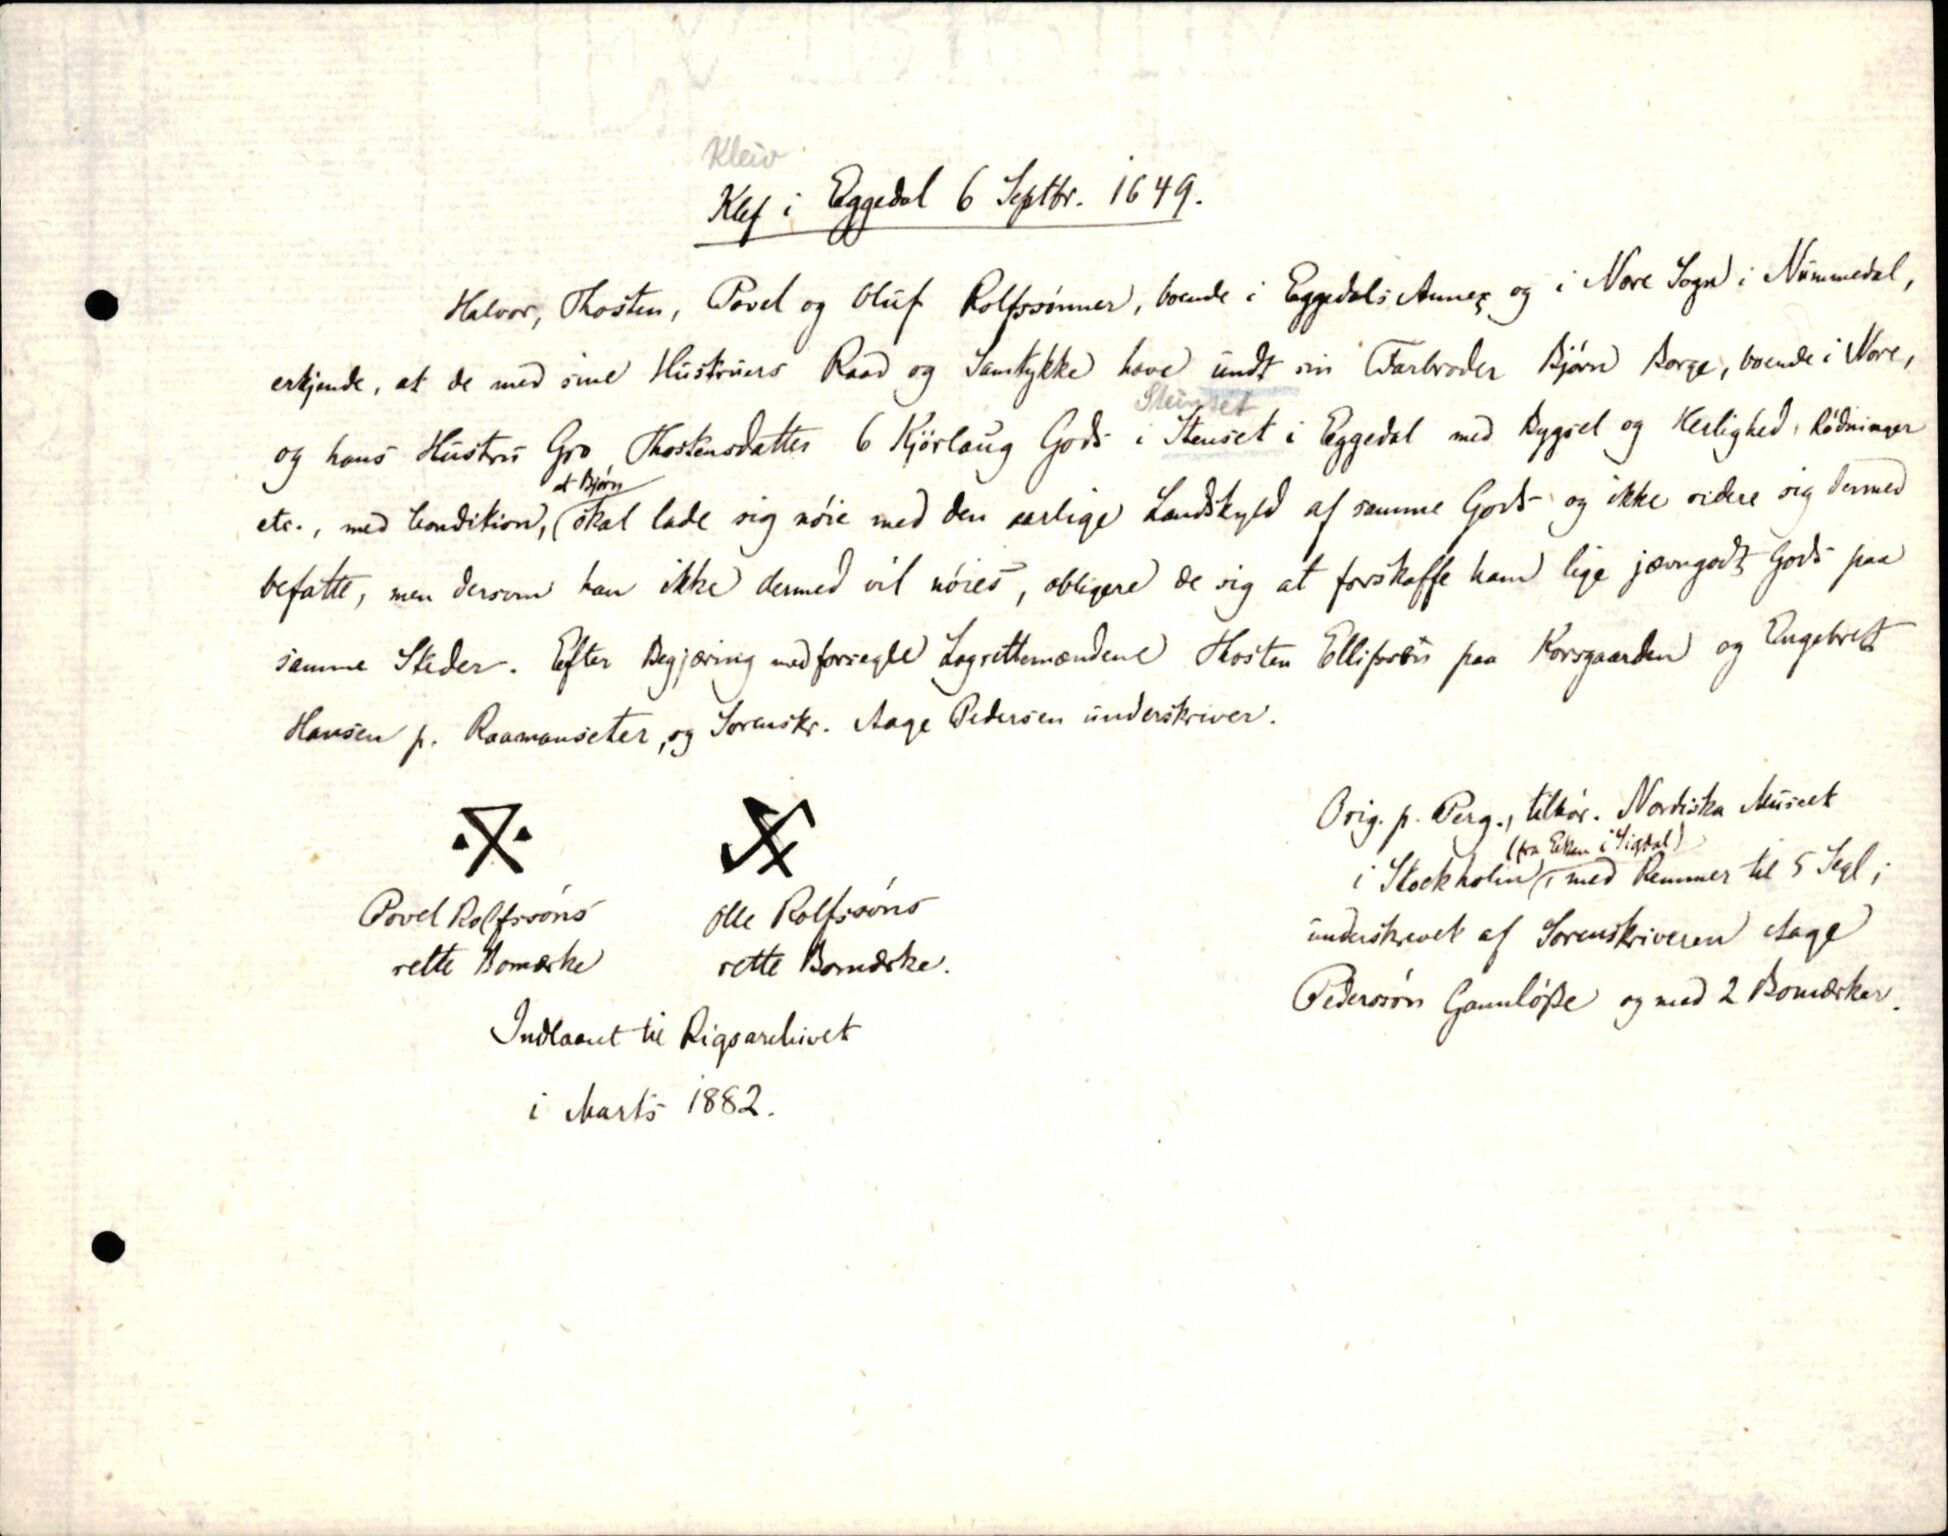 Kleiv
Klef i Eggedal 6 Septbr. 1649.
Halvor, Thosten, Povel og Oluf Rolfssønner, boende i Eggedals Annex og i Nore Sogn i Nummedal,
erkjende, at de med sine Hustruers Raad og Samtykke have undt sin Farbroder Bjørn Borge, boende i Nore,
Steinset
og hans Hustru Gro Thostensdatter 6 Kjörlaug Gods i Stenset i Eggedal med Bygsel og Herlighed, Rödninger
at Bjørn
etc., med Condition, skal lade sig nöie med den aarlige Landskyld af samme Gods og ikke videre sig dermed
befatte, men dersom han ikke dermed vil nöies, obligere de sig at forskaffe ham lige jævngodt Gods paa
samme Steder. Efter Begjæring medforsegle Lagrettemændene Thosten Ellifssøn paa Korsgaarden og Engebrett
Hansen p. Raamanseter, og Sorenskr. Aage Pedersen underskriver.
Povel Rolfssöns
rette Bomærke
Olle Rolfssöns
rette Bomærke.
Indlaant til Rigsarchivet
i Marts 1882.
Orig. p. Perg., tilhör. Nordiska Museet
(fra Eken i Sigdal)
i Stockholm, med Remmer til 5 Segl;
underskrevet af Sorenskriveren Aage
Pederssön Gamlöße og med 2 Bomærker.